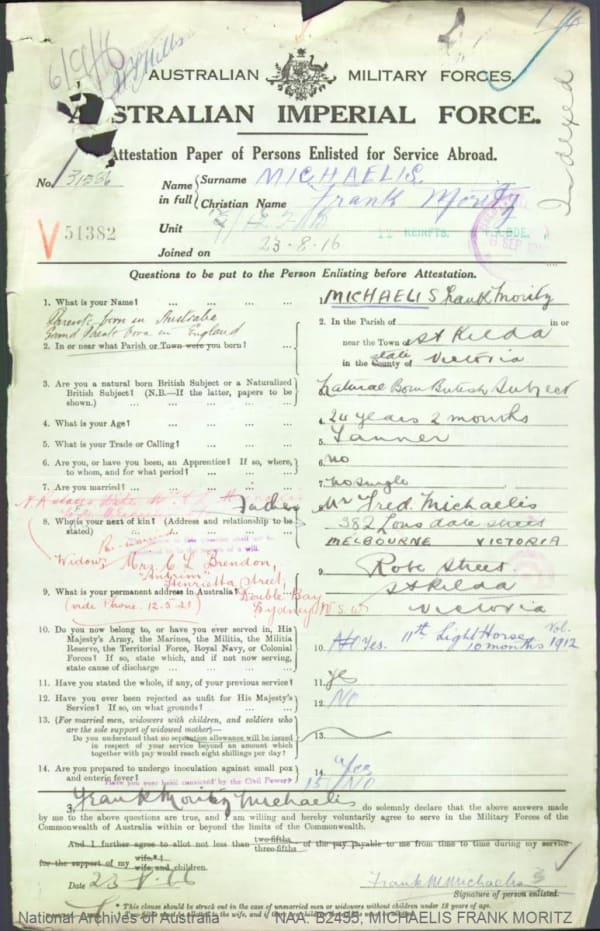 6/9/16
Indexed
AUSTRALIAN MILITARY FORCES.
AUSTRALIAN IMPERIAL FORCE.
Attestation Paper of Persons Enlisted for Service Abroad.
No.
Name in full { Surname MICHAELIS
Christian Name Frank Moritz
51382
Unit
REINFTS.
Joined on 23-8-16
Questions to be put to the Person Enlisting before Attestation.
1. What is your Name? ... 1. MICHAELIS Frank Moritz
Parents born in Australia
Grand Parents born in England
2. In or near what Parish or Town were you born? ... 2. In the Parish of in or
near the Town of St Kilda
in the County of State Victoria
3. Are you a natural born British Subject or a Naturalized
British Subject? (N.B.—If the latter, papers to be
shown.) ... 3. Natural Born British Subject
4. What is your Age? ... 4. 24 years 2 months
5. What is your Trade or Calling? ... 5. Tanner
6. Are you, or have you been, an Apprentice? If so, where,
to whom, and for what period? ... 6. no
7. Are you married? ... 7. No Single
8. Who is your next of kin? (Address and relationship to be
stated) ... 8. Father Mr Fred. Michaelis
382 Lonsdale Street
MELBOURNE VICTORIA
Re-married
Widow: Mrs C L Brendon,
"Antrim"
Henrietta Street,
Double Bay
Sydney N.S.W.
(vide Phone. 12.5.21)
9. What is your permanent address in Australia? 9. Robe Street.
St Kilda
Victoria
10. Do you now belong to, or have you ever served in, His
Majesty's Army, the Marines, the Militia, the Militia
Reserve, the Territorial Force, Royal Navy, or Colonial
Forces? If so, state which, and if not now serving,
state cause of discharge ... 10. No Yes. 11th Light Horse Vol.
10 months 1912
11. Have you stated the whole, if any, of your previous service? 11. Yes
12. Have you ever been rejected as unfit for His Majesty's
Service? If so, on what grounds? ... 12. NO
13. (For married men, widowers with children, and soldiers who
are the sole support of widowed mother)—
Do you understand that no separation allowance will be issued
in respect of your service beyond an amount which
together with pay would reach eight shillings per day? 13.
14. Are you prepared to undergo inoculation against small pox
and enteric fever? 14. Yes
Have you ever been convicted by the Civil Power? 15 NO
I, Frank Moritz Michaelis do solemnly declare that the above answers made
by me to the above questions are true, and I am willing and hereby voluntarily agree to serve in the Military Forces of the
Commonwealth of Australia within or beyond the limits of the Commonwealth.
And I further agree to allot not less than two-fifths three-fifths of the pay payable to me from time to time during my service
for the support of my wife* wife and children.
Date 23-8-16
Frank M Michaelis
Signature of person enlisted.
* This clause should be struck out in the case of unmarried men or widowers without children under 18 years of age.
National Archives of Australia NAA: B2455, MICHAELIS FRANK MORITZ